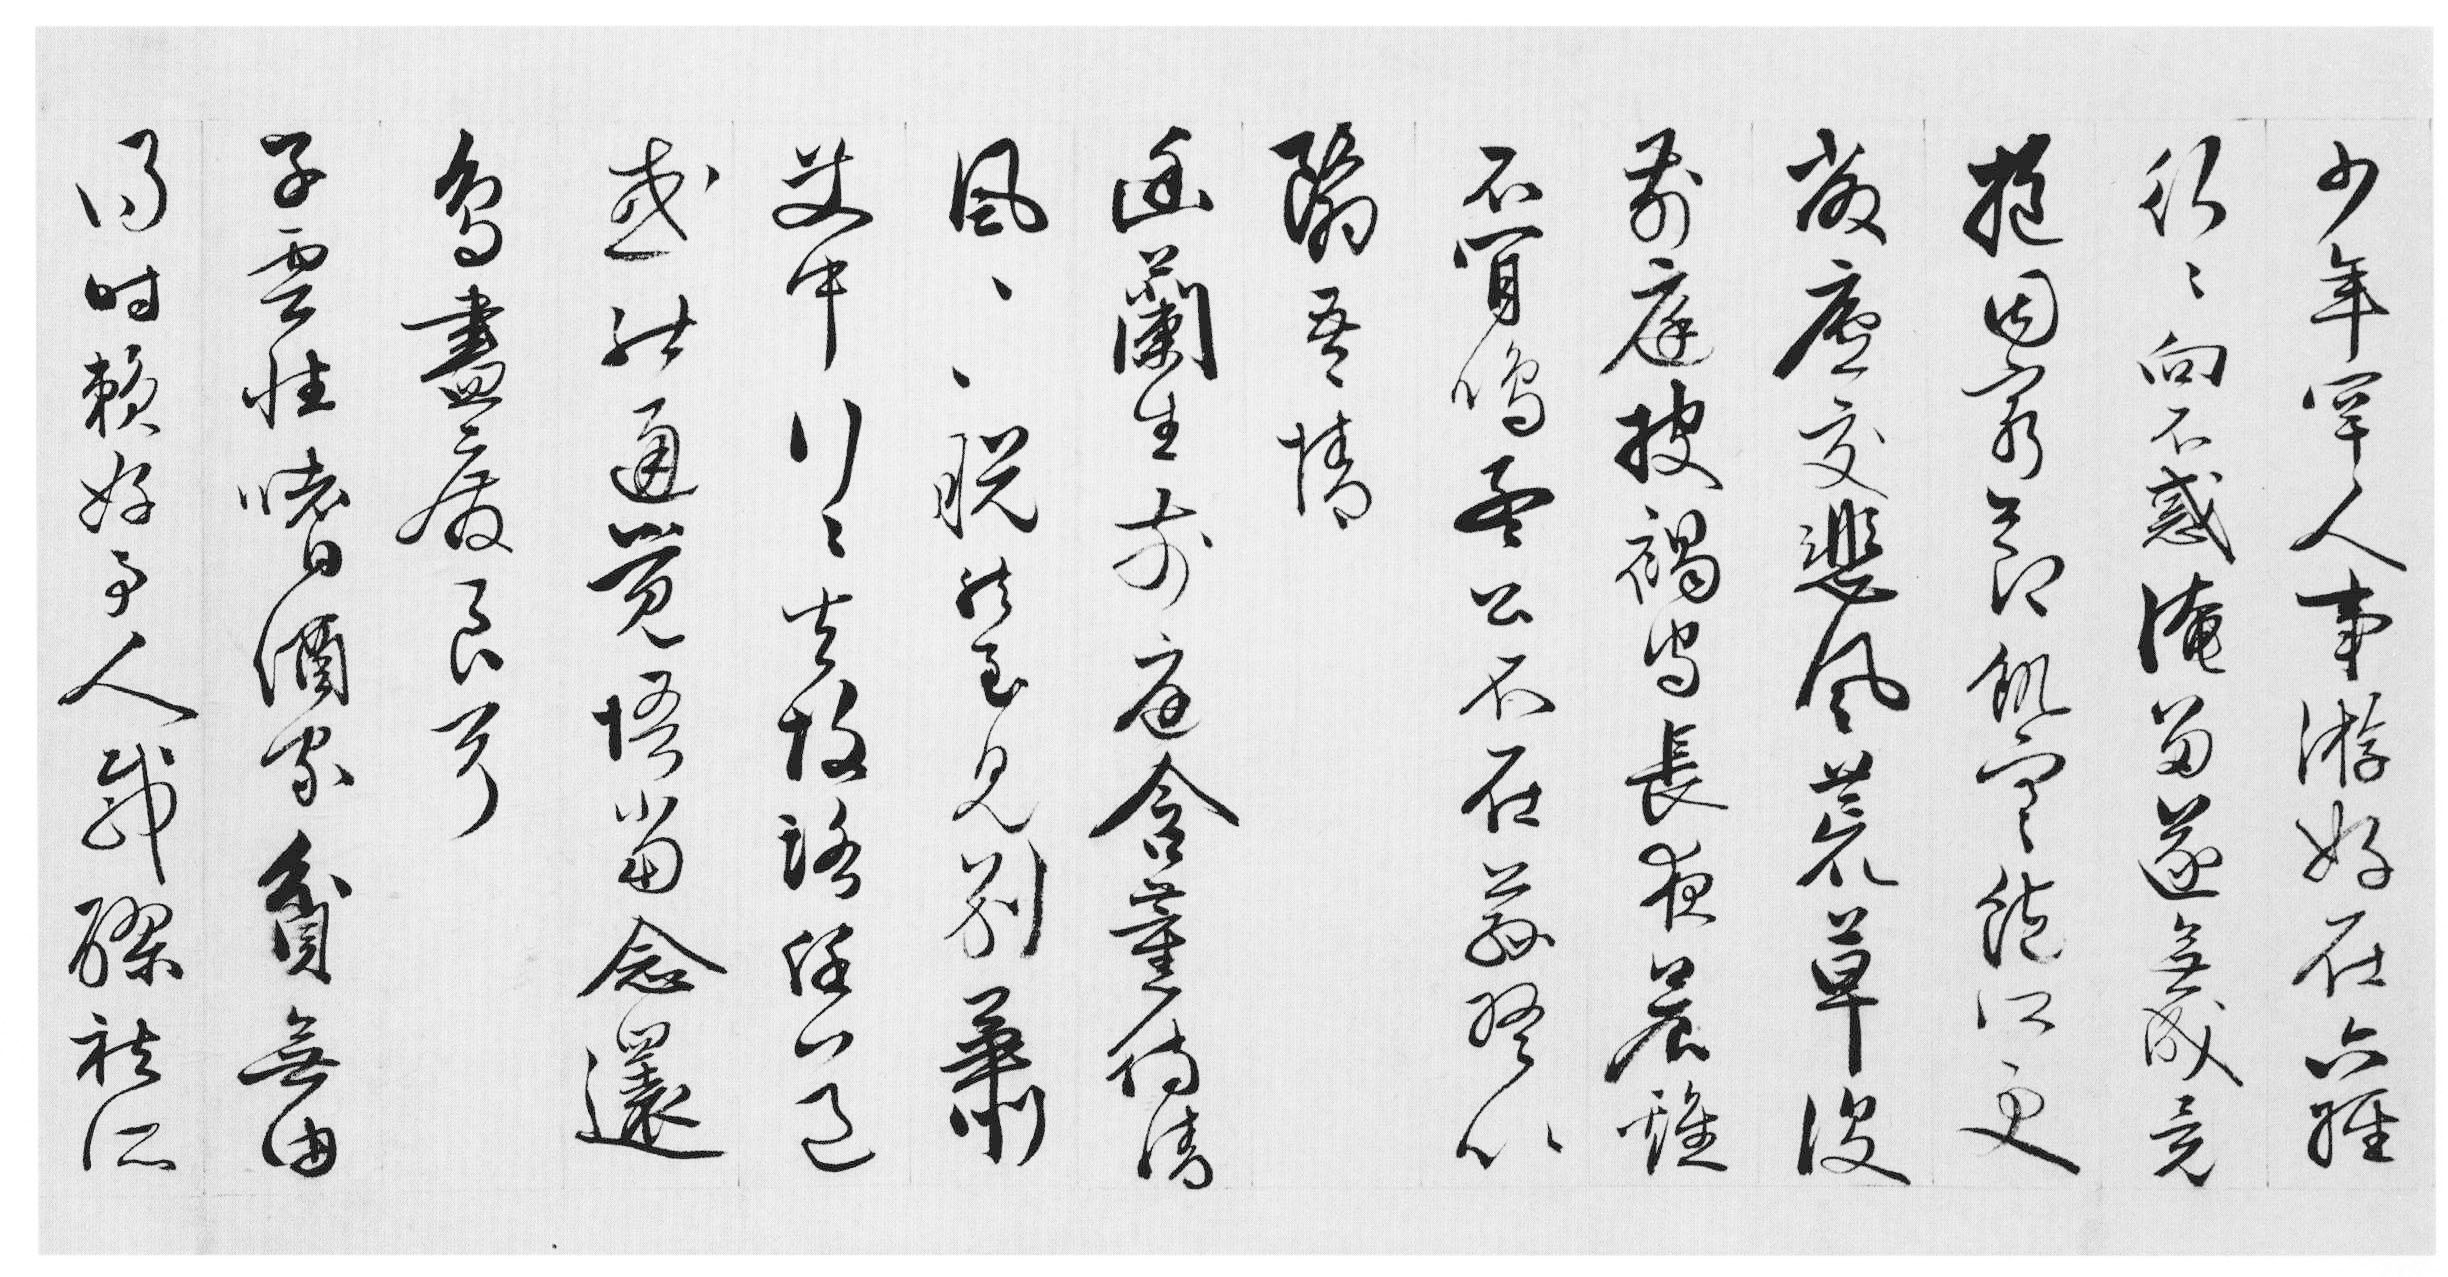 少年罕人事游好在六經
行〻向不惑淹留遂無成竟
抱固窮節飢寒飽所更
敝廬交悲風荒草沒
前庭披褐守長夜晨雞
不肯鳴孟公不在茲終以
翳吾情
幽蘭生前庭含薰待清
風〻〻脫然至見別蕭
艾中行〻失故路任道
或能通覺悟當念還
鳥盡廢良弓
子雲性嗜酒家貧無由
得時賴好事人載醪祛所